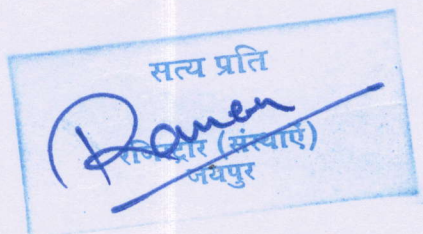 सत्य प्रति
रजिस्ट्रार (संस्थाएं)
जयपुर